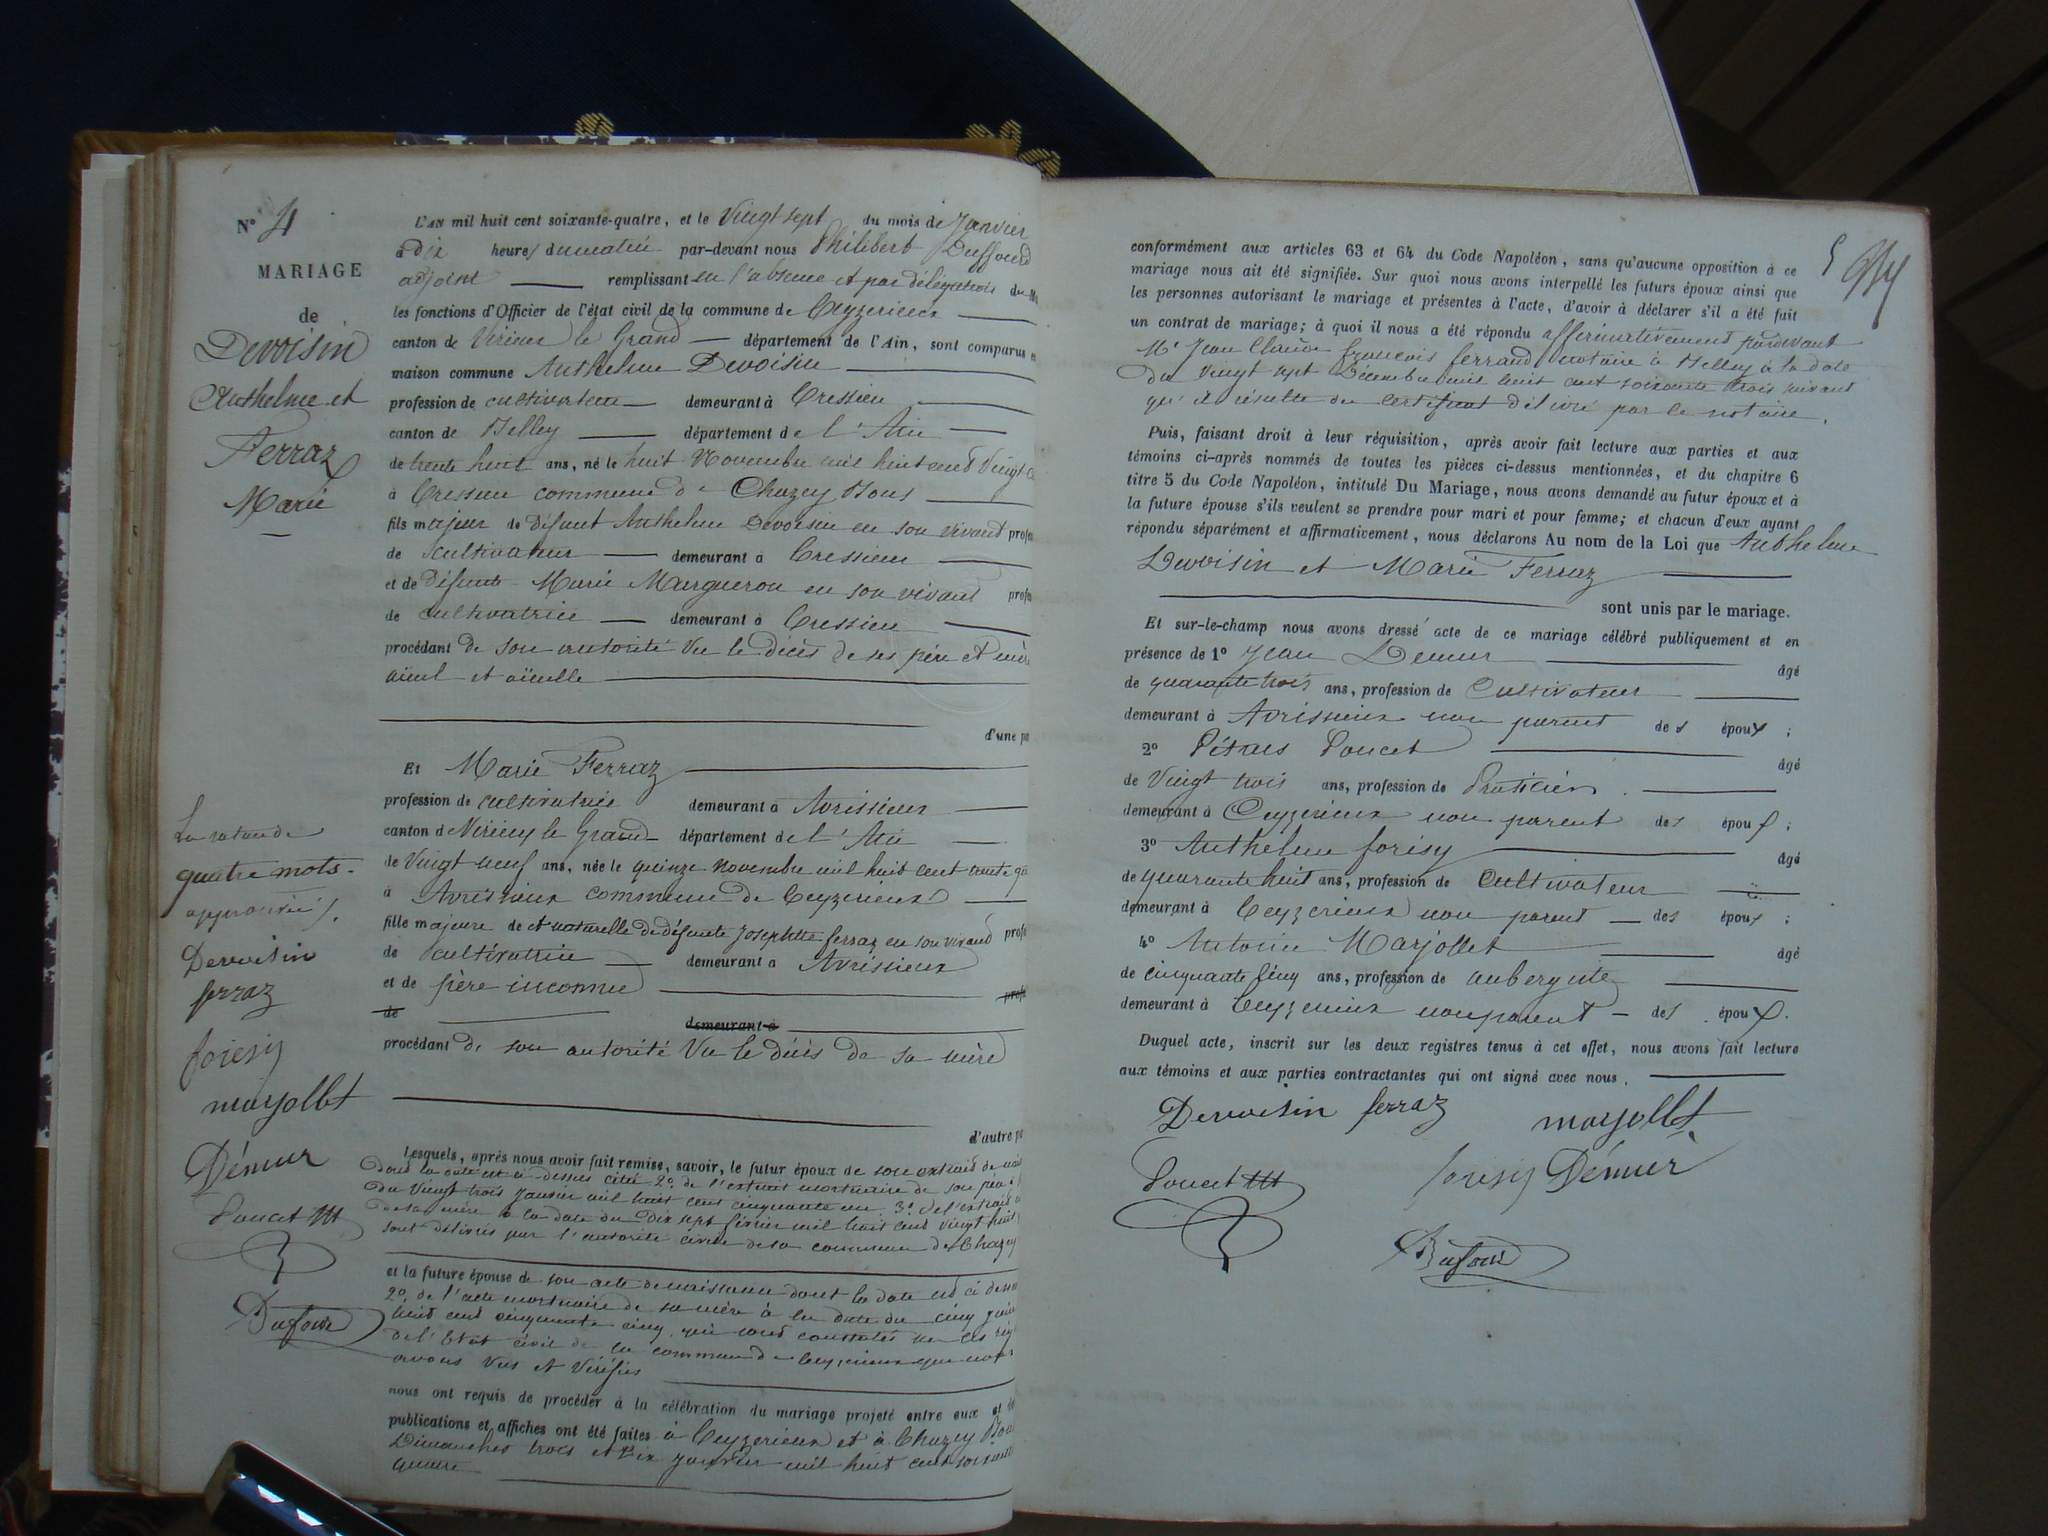 N° 4
MARIAGE
de
Devoisin
Anthelme et
Ferraz
Marie
La rature de
quatre mots
approuvée
Dervoisin
ferraz
forisy
marjollet
Démur
Poncet
Dufour
L'AN mil huit cent soixante-quatre, et le Vingt sept du mois de Janvier
à dix heures du matin par-devant nous Philibert Duffourd
adjoint remplissant en l'absence et par délégation du M
les fonctions d'Officier de l'état civil de la commune de Ceyzerieux
canton de Virieu le Grand département de l'Ain, sont comparus en
maison commune Anthelme Devoisin
profession de cultivateur demeurant à Cressieu
canton de Belley département de l'Ain
de trente huit ans, né le huit Novembre mil huit cent Vingt c
à Cressieu commune de Chazey Bons
fils majeur de défunt Anthelme Devoisin en son vivant profes
de cultivateur demeurant à Cressieu
et de défunte Marie Margueron en son vivant profes
de cultivatrice demeurant à Cressieu
procédant de son autorité Vu le décès de ses père et mère
aïeul et aïeulle
d'une pa
Et Marie Ferraz
profession de cultivatrice demeurant à Avrissieux
canton de Virieu le Grand département de l'Ain
de Vingt neuf ans, née le quinze novembre mil huit cent trente qu
à Avrissieux commune de Ceyzerieux
fille majeure de et naturelle de défunte Josephtte ferraz en son vivant profes
de cultivatrice demeurant à Avrissieux
et de père inconnu profes
de demeurant à
procédant de son autorité Vu le décès de sa mère
d'autre pa
Lesquels, après nous avoir fait remise, savoir, le futur époux de son extrait de nais
dont la date est ci dessus citée 2° de l'extrait mortuaire de son père à
du Vingt trois Janvier mil huit cent cinquante un 3° de l'extrait
de sa mère à la date du Dix sept février mil huit cent vingt huit
sont délivrés par l'autorité civile de la commune de Chazey
et la future épouse de son acte de naissance dont la date est ci dessus
2° de l'acte mortuaire de sa mère à la date du cinq
huit cent cinquante cinq qui sont constatés sur les rég
de l'Etat civil de la commune de Ceyzerieux que nous
avons Vus et Vérifiés
nous ont requis de procéder à la célébration du mariage projeté entre eux et
publications et affiches ont été faites à Ceyzerieux et à Chazey Bons
Dimanches trois et Dix Janvier mil huit cent soixante
quatre
conformément aux articles 63 et 64 du Code Napoléon, sans qu'aucune opposition à ce
mariage nous ait été signifiée. Sur quoi nous avons interpellé les futurs époux ainsi que
les personnes autorisant le mariage et présentes à l'acte, d'avoir à déclarer s'il a été fait
un contrat de mariage; à quoi il nous a été répondu affirmativement pardevant
Me Jean Claude françois ferrand notaire à Belley à la date
du Vingt sept Décembre mil huit cent soixante trois suivant
qu'il résulte du certificat délivré par le notaire.
Puis, faisant droit à leur réquisition, après avoir fait lecture aux parties et aux
témoins ci-après nommés de toutes les pièces ci-dessus mentionnées, et du chapitre 6
titre 5 du Code Napoléon, intitulé Du Mariage, nous avons demandé au futur époux et à
la future épouse s'ils veulent se prendre pour mari et pour femme; et chacun d'eux ayant
répondu séparément et affirmativement, nous déclarons Au nom de la Loi que Anthelme
Devoisin et Marie Ferraz
sont unis par le mariage.
Et sur-le-champ nous avons dressé acte de ce mariage célébré publiquement et en
présence de 1° Jean Demur âgé
de quarante trois ans, profession de Cultivateur
demeurant à Avrissieux non parent des époux ;
2° Pétrus Poncet âgé
de Vingt trois ans, profession de Praticien
demeurant à Ceyzerieux non parent des époux ;
3° Anthelme forisy âgé
de quarante huit ans, profession de Cultivateur
demeurant à Ceyzerieux non parent des époux ;
4° Antoine Marjollet âgé
de cinquante cinq ans, profession de aubergiste
demeurant à Ceyzerieux non parent des époux.
Duquel acte, inscrit sur les deux registres tenus à cet effet, nous avons fait lecture
aux témoins et aux parties contractantes qui ont signé avec nous.
Dervoisin ferraz marjollet
Poncet forisy Démur
Dufour